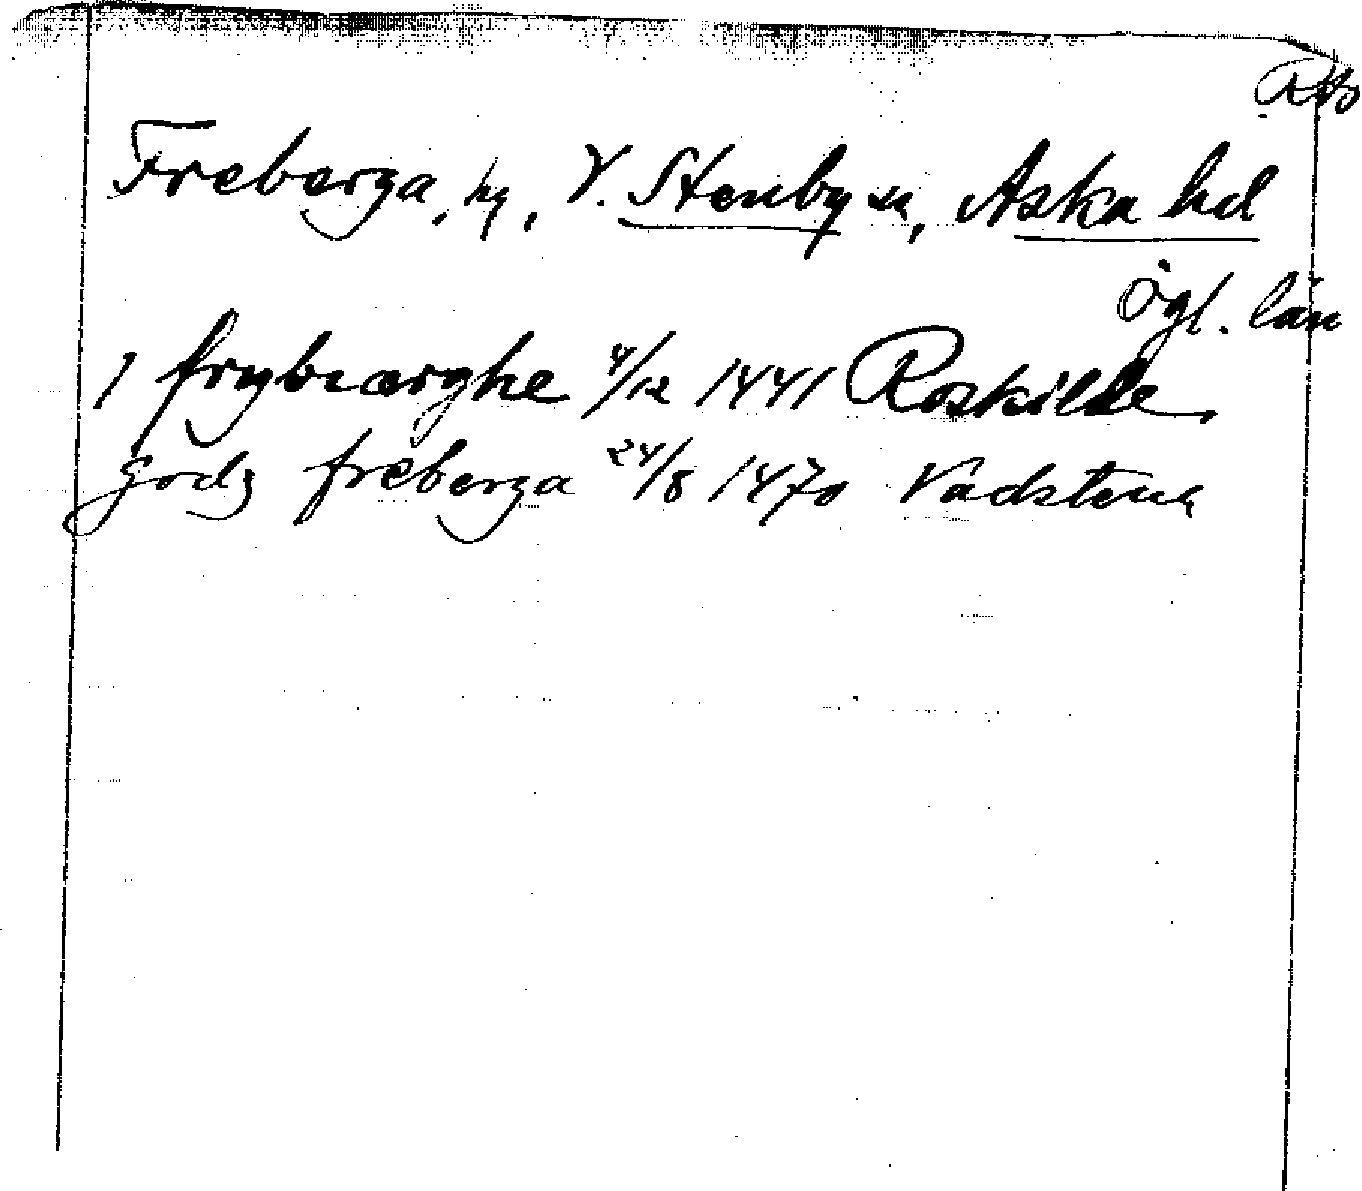 Freberga, by, V. Stenby sn, Aska hd
Ögl. län
J frybiærghe 4/12 1441 Roskilde,
godz freberga 24/8 1470 Vadstena